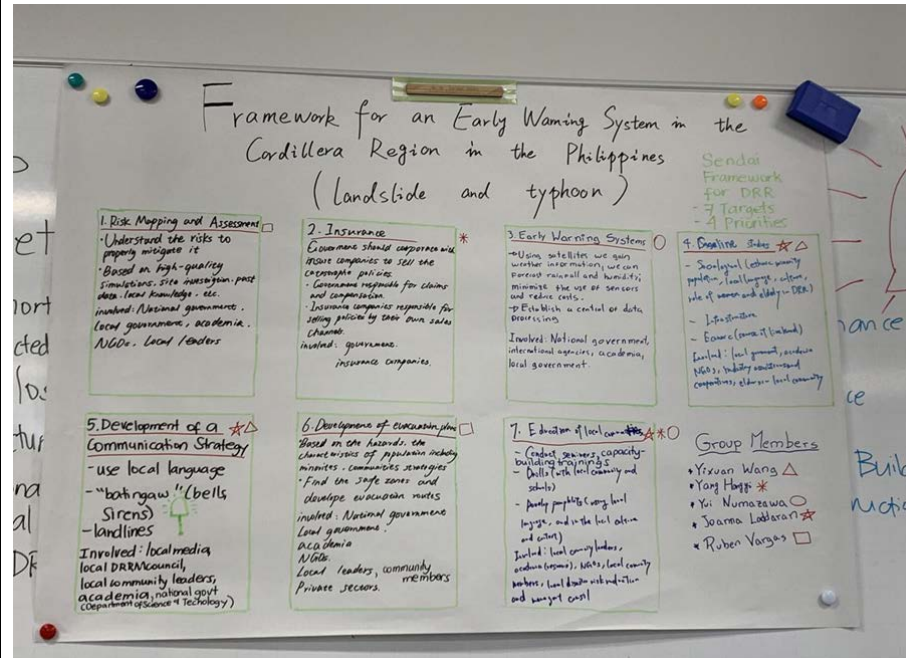 Framework for an Early Warning System in the
Cordillera Region in the Philippines
(landslide and typhoon)
Sendai
Framework
for DRR
- 7 Targets
- 4 Priorities
1. Risk Mapping and Assessment
• Understand the risks to
properly mitigate it
• Based on high-quality
simulations, site investigation, past
data, local knowledge, etc.
involved: National government.
local government, academia.
NGOs. Local leaders
2. Insurance
Government should cooperate with
insure companies to sell the
catastrophe policies.
- Government responsible for claims
and compensation
• Insurance companies responsible for
selling policies by their own sales
channels.
involved: government.
insurance companies.
3. Early Warning Systems
→ Using satellites we gain
weather information, we can
forecast rainfall and humidity,
minimize the use of sensors
and reduce costs.
→ Establish a central of data
processing
Involved: National government,
international agencies, academia,
local government.
4. Baseline studies
- Sociological (ethnic minority
population, local language, culture,
role of women and elderly in DRR)
- Infrastructure
- Economic (source of livelihood)
Involved: local government, academia
NGOs, industry associations and
cooperatives, elders in local community
5. Development of a
Communication Strategy
- use local language
- "batingaw" (bells,
Sirens)
- landlines
Involved: local media,
local DRRM council,
local community leaders,
academia, national govt
(Department of Science & Techology)
6. Development of evacuation plans
Based on the hazards, the
characteristics of population including
minorities, communities strategies
• Find the safe zones and
develope evacuation routes
involved: National government
Local government.
academia
NGOs.
Local leaders, community
members
Private sectors.
7. Education of local
- Conduct seminars, capacity-
building trainings
- Drills (with local community and
schools)
- pamphlets (using local
language, and in the local culture
and context)
Involved: local community leaders,
academia, NGOs, local community
members, local disaster risk reduction
and management council
Group Members
• Yixuan Wang
• Yang Hongyi
• Yui Numazawa
• Joanna
• Ruben Vargas
et
hort
cted
los
tur
na
al
DR
ance
ce
Build